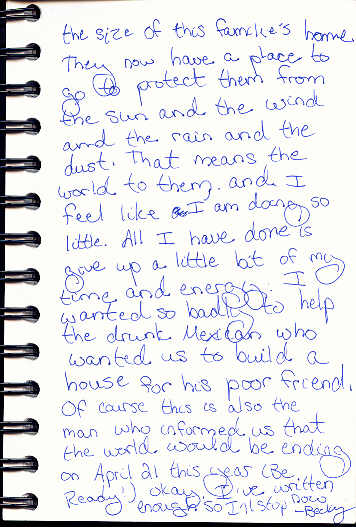 the size of this familie's home.
They now have a place to
go to protect them from
the sun and the wind
and the rain and the
dust. That means the
world to them. and I
feel like I am doing so
little. All I have done is
give up a little bit of my
time and energy. I
wanted so badly to help
the drunk Mexican who
wanted us to build a
house for his poor friend.
Of course this is also the
man who informed us that
the world would be ending
on April 21 this year (Be
Ready!) okay I've written
enough so I'll stop now
-Becky